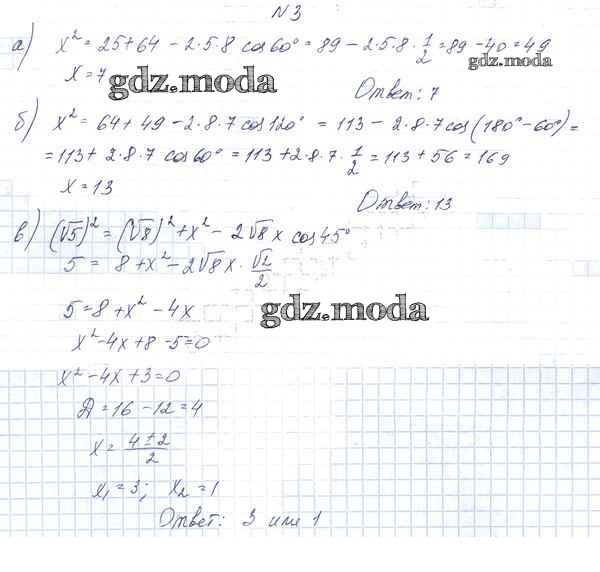 N 3
а) x² = 25+64 – 2·5·8 cos60° = 89 – 2·5·8·1/2 = 89 – 40 = 49
x = 7
gdz.moda
gdz.moda
Ответ: 7
б) x² = 64+49 – 2·8·7 cos120° = 113 – 2·8·7 cos(180° – 60°) =
= 113 + 2·8·7 cos60° = 113 + 2·8·7·1/2 = 113 + 56 = 169
x = 13
gdz.moda
Ответ: 13
в) (√5)² = (√8)² + x² – 2√8 x cos45°
5 = 8 + x² – 2√8 x · √2/2
5 = 8 + x² – 4x
gdz.moda
x² – 4x + 8 – 5 = 0
x² – 4x + 3 = 0
Д = 16 – 12 = 4
x = 4±2/2
x₁ = 3; x₂ = 1
Ответ: 3 или 1